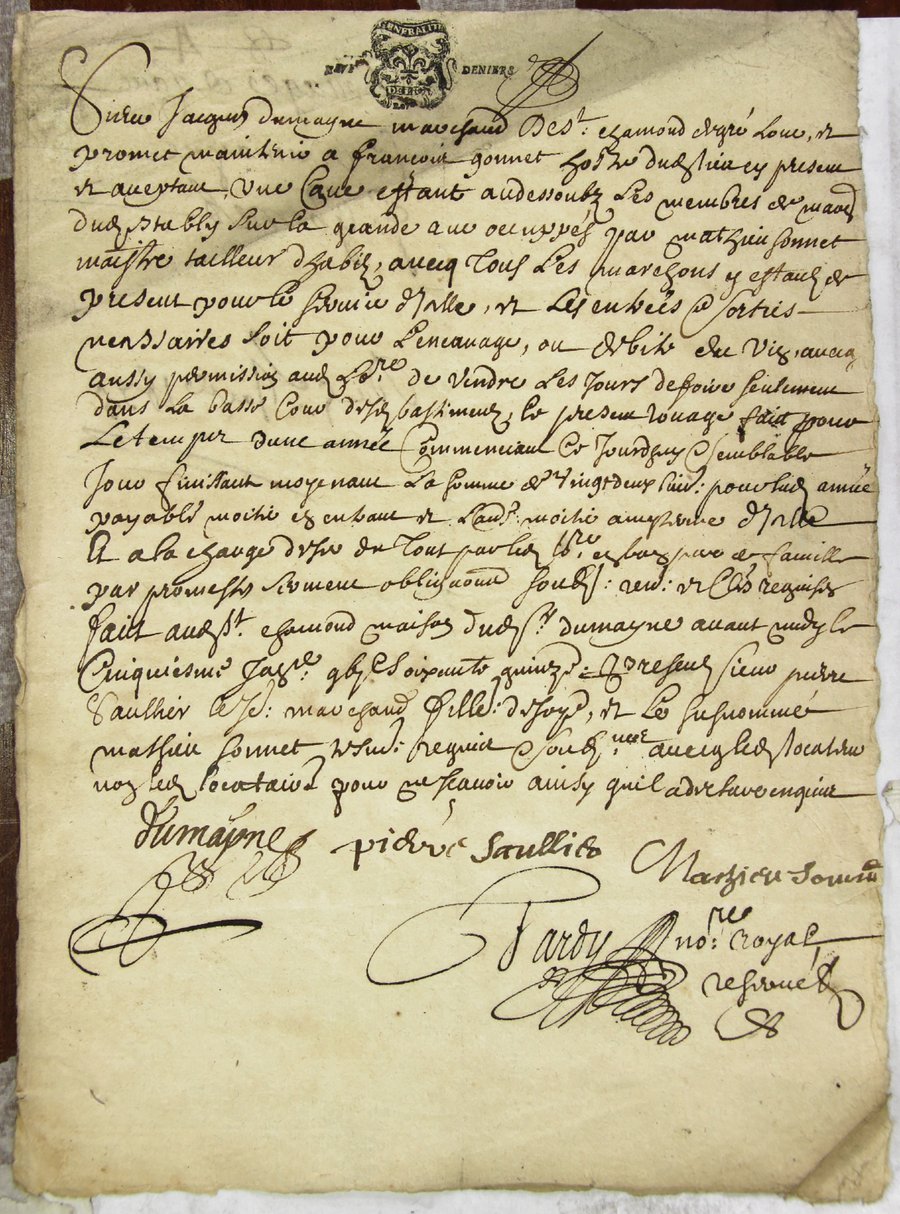 GENERALITE
NEUF DENIERS
DE LION
Sieur Jacques dumayne marchand de St: chamond de gré loue, et
promet maintenir a francois gonnet hoste dud lieu cy present
et acceptant, une Cave estant audessoubz les membres de mais
dud establys sur la grande occuppés par mathieu sonnet
maistre tailleur d'habitz, avecq tous les marchons y estant de
present pour le service d'icelle, et les entrées et sorties
necessaires soit pour l'encavage, ou debite du vin, avecq
aussy permission aud l.re de vendre les jours de foire seulement
dans la basse cour desd bastiments, le present louage fait pour
le temps d'une année Commenceant ce Jourdhuy et semblable
Jour finissant moyenant la somme de vingt deux livr: pour lad année
payable moitié en entrant et l'autr: moitié a my terme d'icelle
Et a la charge d'user du tout par led l.re en bon pere de famille
par promesses serment obligaons soubz: ren: et Clses requises
faict aud St. chamond maison dud Sr. dumayne avant midy le
Cinquiesme Jour gbre Soixante quinze presentz sieur pierre
Saullier marchand fille: de soye, et le susnommé
mathieu sonnet tesm: requis et soubz.nez avecq led locateur
non led locataire pour ne scavoir ainsy qu'il a dit enquis
dumayne
pierre Saullier
Mathieu sonnet
Pardy no.re royal
reservé